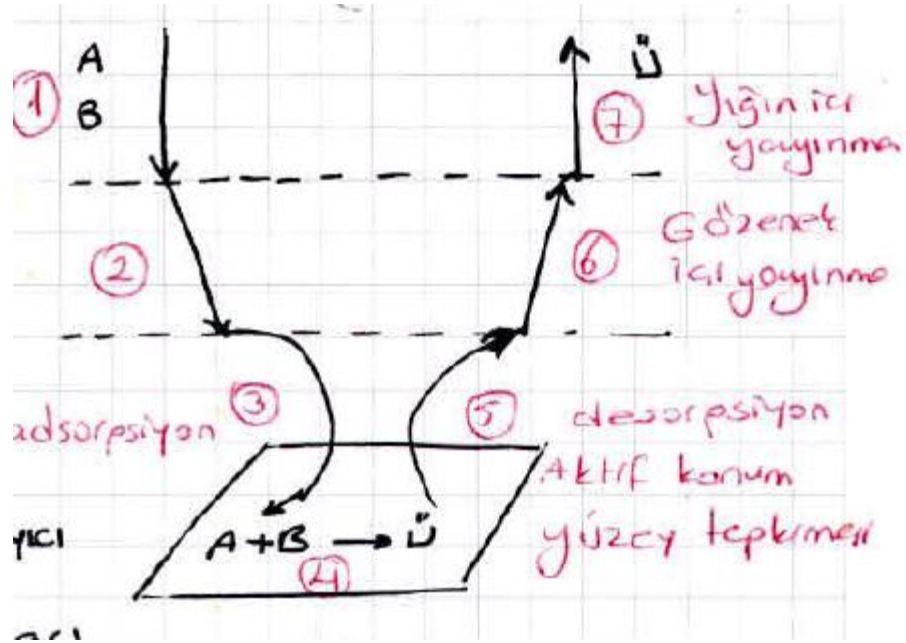 A
Ü
1
B
7
Yığın içi
yayınma
2
6
Gözenek
içi yayınma
3
5
adsorpsiyon
desorpsiyon
Aktif konum
yıcı
A+B → Ü
yüzey tepkimesi
4